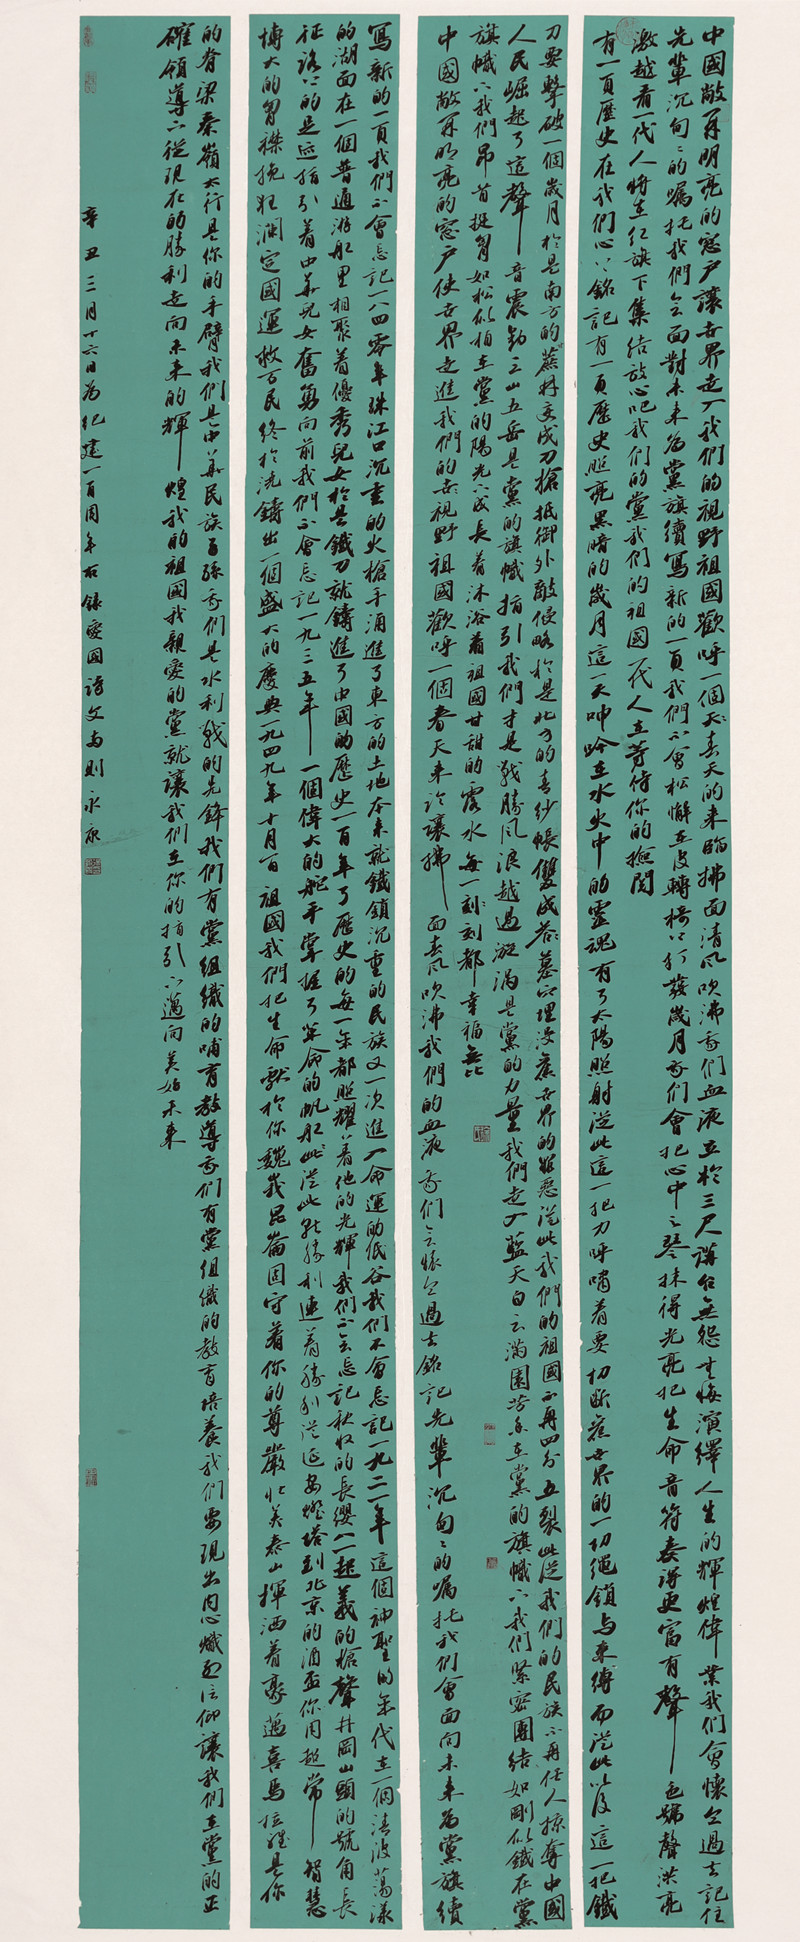 中國敞開明亮的窓户讓世界走入我們的視野祖國歡呼一個春天的來臨拂面清風吹沸我们血液立於三尺講台無怨無悔演繹人生的輝煌偉業我們會懷念過去記住
先輩沉甸甸的囑托我們会面對未来為黨旗續寫新的一頁我們不會松懈立足轉椅打發歲月我们會把心中之琴抹得光亮把生命音符奏得更富有聲色嗓聲洪亮
激越看一代人將在红旗下集结放心吧我們的黨我們的祖國一代人在等待你的撿閲
有一頁歷史在我們心上銘記有一頁歷史照亮黑暗的歲月這一天呻吟在水火中的靈魂有了太陽照射從此這一把刀呼嘯着要切断舊世界的一切绳鎖与束縛而從此以後這一把鐵
刀要擊破一個歲月於是南方的蔗林变成刀槍抵御外敵侵略於是北方的青纱帳雙成墓穴埋没舊世界的罪惡從此我們的祖國不再四分五裂從此我們的民族不再任人掠奪中國
人民崛起了這聲音震動三山五岳是黨的旗幟指引我們才是戰勝風浪越過漩涡是黨的力量我們走入藍天白云满園芬芳在黨的旗幟下我們緊密團结如剛似鐵在黨
旗幟下我們昂首挺胸如松似柏在黨的陽光下成長着沐浴着祖國甘甜的露水每一刻刻都幸福無比
中國敞開明亮的窓户使世界走進我們的視野祖國歡呼一個春天來臨讓拂面春風吹沸我們的血液我们会懷念過去銘記先輩沉甸甸的囑托我們會面向未来為黨旗續
寫新的一頁我們不會忘記一八四零年珠江口沉重的火槍手涌進了東方的土地本来就鐵鎖沉重的民族又一次進入命運的低谷我們不會忘記一九二一年這個神聖的年代在一個清波蕩漾
的湖面在一個普通游船里相聚着優秀兒女於是鐵刀就鑄進了中國的歷史一百年了歷史的每一年都照耀着他的光輝我們不会忘記秋收的長纓八一起義的槍聲井岡山頭的號角長
征路上的足迹指引着中華兒女奮勇向前我們不會忘記一九三五年一個偉大的舵手掌握了革命的帆船從此勝利連着勝利從延安燈塔到北京的酒盃你用超常智慧
博大的胸襟挽狂瀾定國運救百民終於澆鑄出一個盛大的慶典一九四九年十月一日祖國我們把生命献於你巍峩昆崙固守着你的尊嚴壮美泰山揮洒着豪邁喜馬拉雅是你
的脊梁秦嶺太行是你的手臂我們是中華民族子孫我们是水利戰的先鋒我們有黨組織的哺育教導我们有黨組織的教育培養我们要現出内心熾烈信仰讓我們在黨的正
確領導下從現在的勝利走向未来的輝煌我的祖國我親愛的黨就讓我們在你的指引下邁向美好未来
辛丑三月十六日為纪建一百周年右錄愛國詩文与則永康